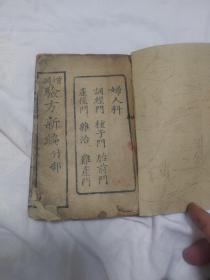 婦人科
調經門 種子門 胎前門
產後門 雜治 難產門
增
驗方新編